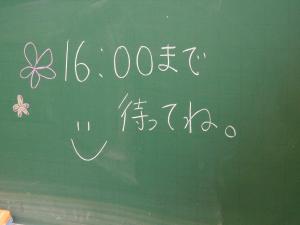 16:00まで
待ってね。